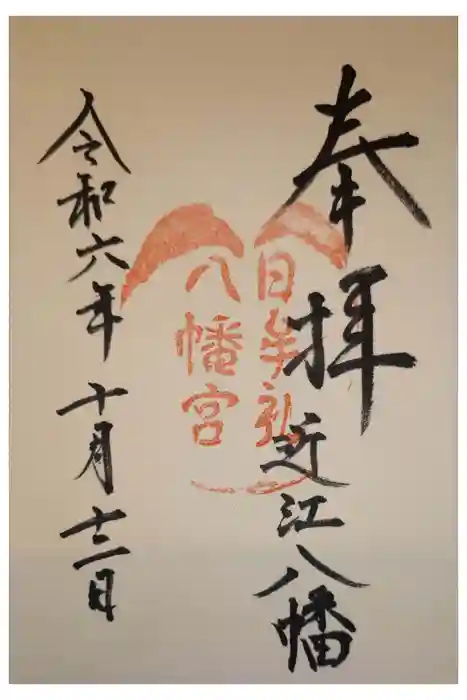 奉拝
近江八幡
日牟礼
八幡宮
令和六年十月十二日